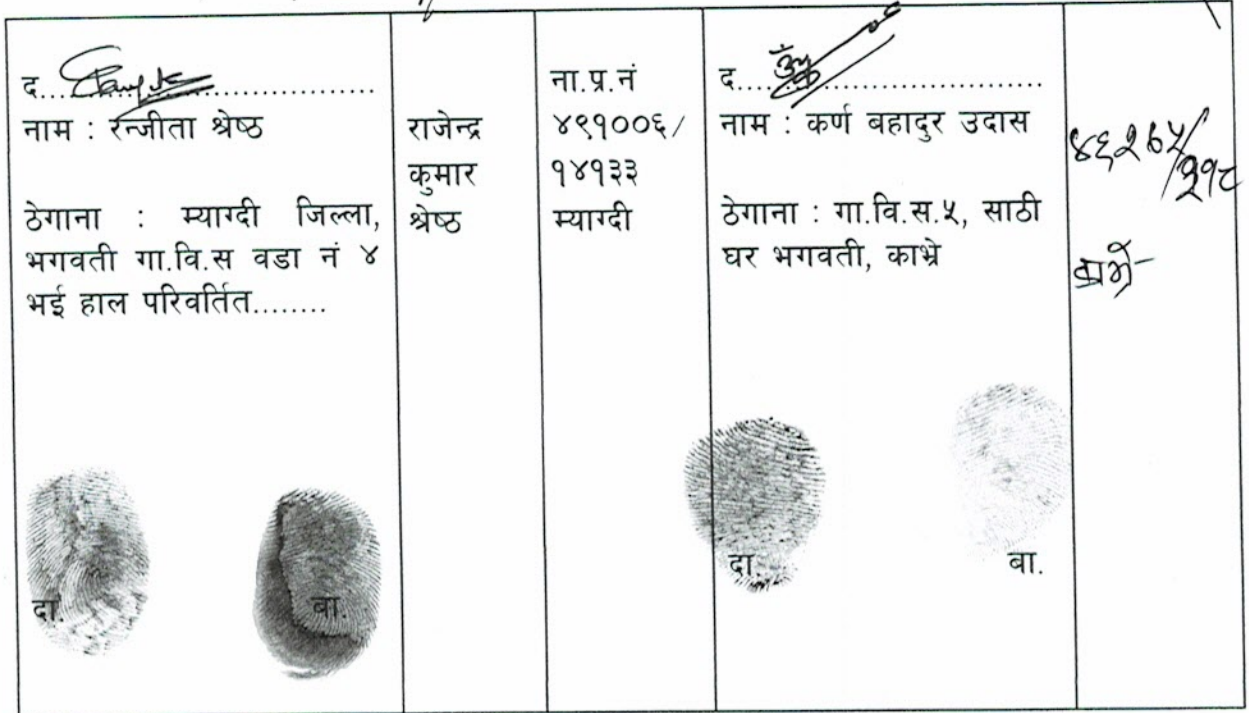 द.......................................
नाम : रन्जीता श्रेष्ठ
ठेगाना : म्याग्दी जिल्ला,
भगवती गा.वि.स वडा नं ४
भई हाल परिवर्तित........
दा.
बा.
राजेन्द्र
कुमार
श्रेष्ठ
ना.प्र.नं
४९१००६/
१४१३३
म्याग्दी
द.......................................
नाम : कर्ण बहादुर उदास
ठेगाना : गा.वि.स.५, साठी
घर भगवती, काभ्रे
दा.
बा.
काभ्रे